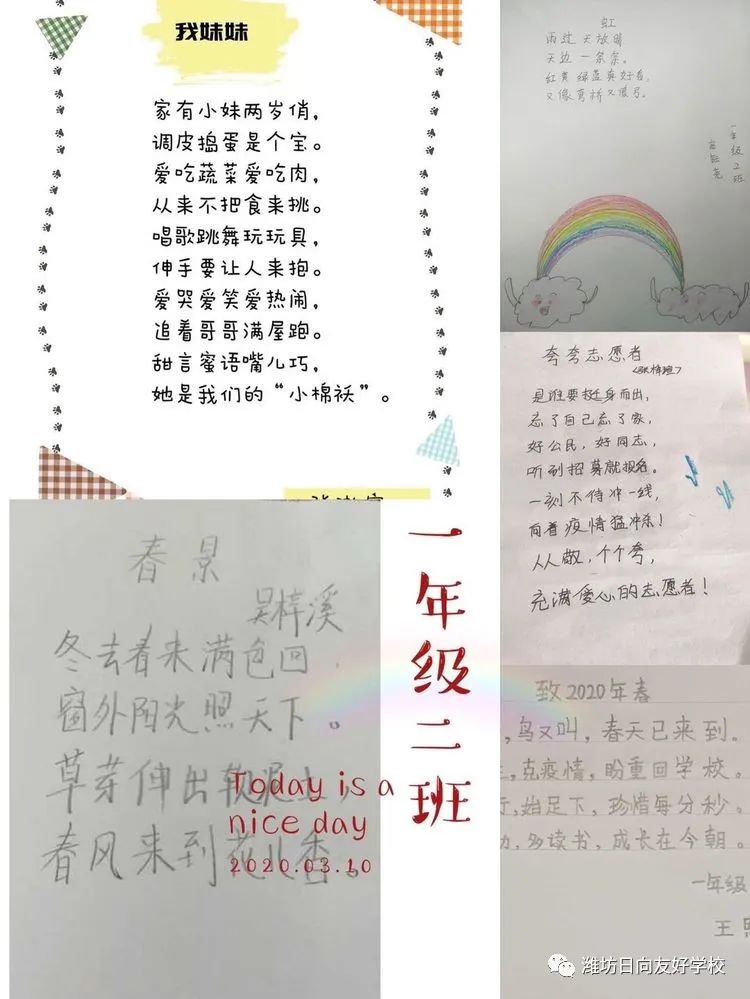 我妹妹
家有小妹两岁俏，
调皮捣蛋是个宝。
爱吃蔬菜爱吃肉，
从来不把食来挑。
唱歌跳舞玩玩具，
伸手要让人来抱。
爱哭爱笑爱热闹，
追着哥哥满屋跑。
甜言蜜语嘴儿巧，
她是我们的“小棉袄”。
虹
雨过天放晴
天边一条条。
红黄绿蓝真好看，
又像弯桥又像弓。
一年级2班
夸夸志愿者
是谁要挺身而出，
忘了自己忘了家，
好公民，好同志，
听到招募就报名。
一刻不待冲一线，
向着疫情猛冲杀！
人人敬，个个夸，
充满爱心的志愿者！
春景
吴梓溪
冬去春来满色回，
窗外阳光照天下。
草芽伸出软泥土，
春风来到花儿香。
一年级二班
Today is a
nice day
2020.03.10
致2020年春
，鸟又叫，春天已来到。
，克疫情，盼重回学校。
，始足下，珍惜每分秒。
，多读书，成长在今朝。
一年级
王
潍坊日向友好学校